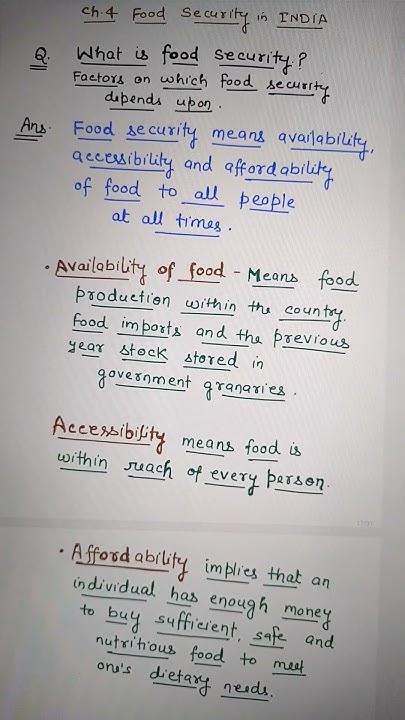 Ch.4 Food Security in INDIA
Q. What is food security?
Factors on which food security
depends upon.
Ans. Food security means availability,
accessibility and affordability
of food to all people
at all times.
• Availability of food - Means food
production within the country,
food imports and the previous
year stock stored in
government granaries.
Accessibility means food is
within reach of every person.
• Affordability implies that an
individual has enough money
to buy sufficient, safe and
nutritious food to meet
one's dietary needs.